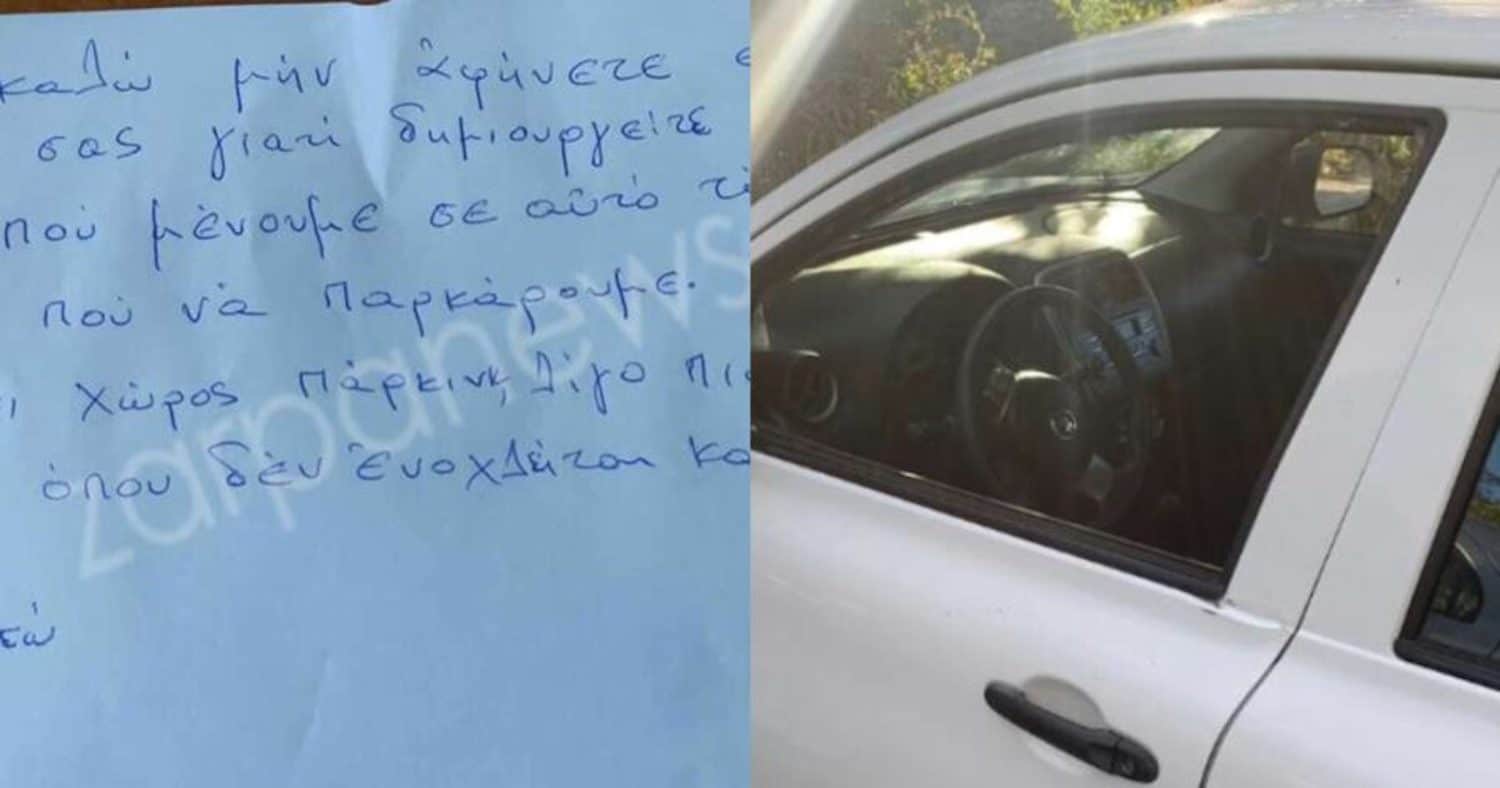 καλῶ μὴν ἀφήνετε
σας γιατί δημιουργείτε
ποὺ μένουμε σε αὐτὸ
ποὺ νὰ παρκάρουμε.
χώρος πάρκινκ, λίγο
ὁπου δὲν ἐνοχλείται
zarpanews